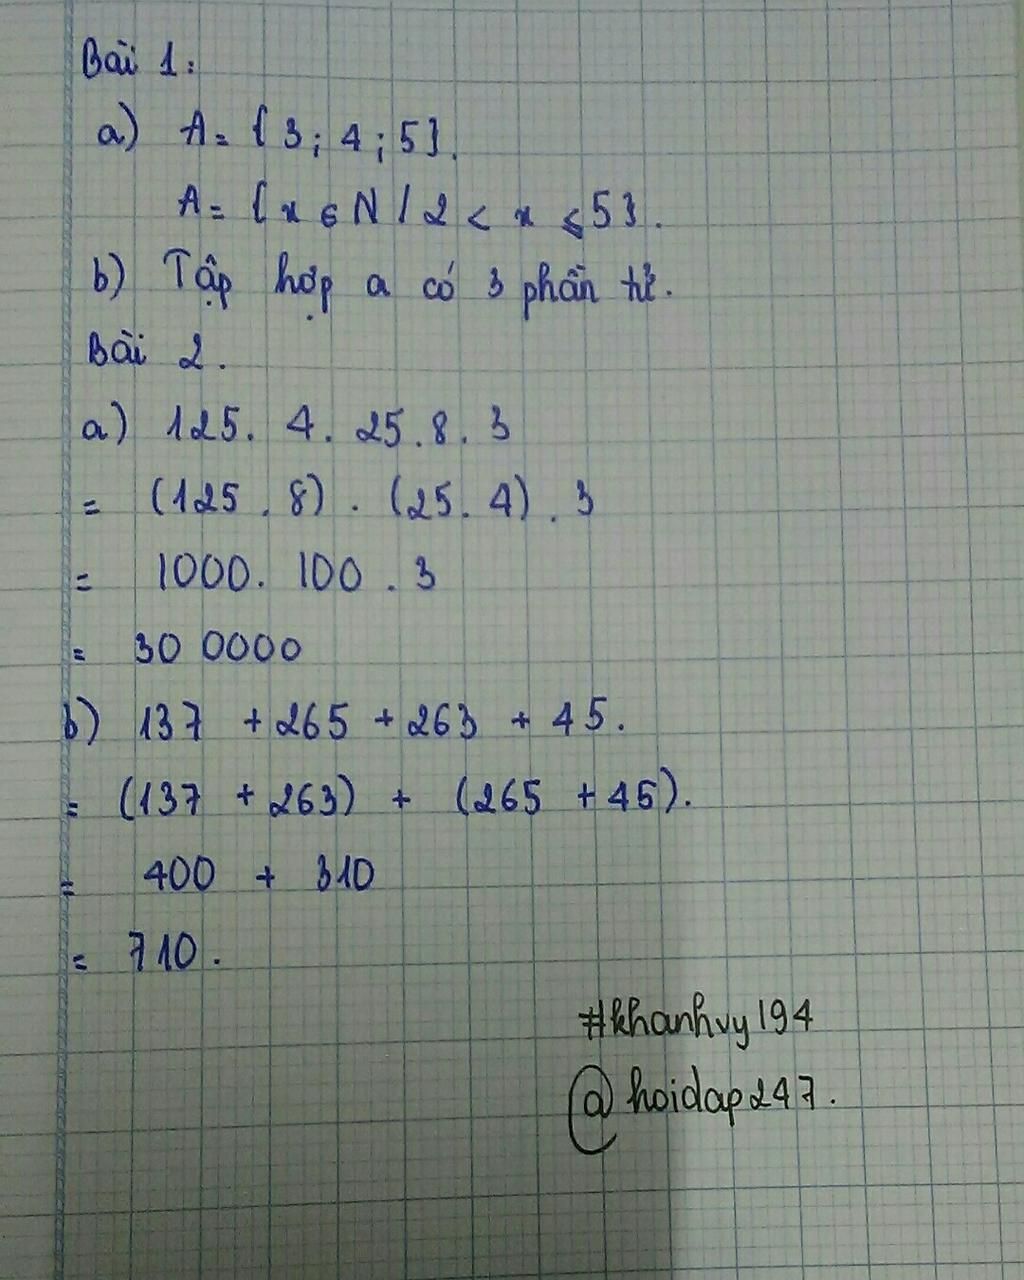 Bài 1:
a) A = { 3 ; 4 ; 5 }.
A = { x ∈ N / 2 < x ⩽ 5 }.
b) Tập hợp a có 3 phần tử.
Bài 2.
a) 125. 4. 25 . 8 . 3
= (125 . 8) . (25 . 4) . 3
= 1000. 100 . 3
= 30 0000
b) 137 + 265 + 263 + 45.
= (137 + 263) + (265 + 45).
= 400 + 310
= 710.
#khanhvy194
@hoidap247.